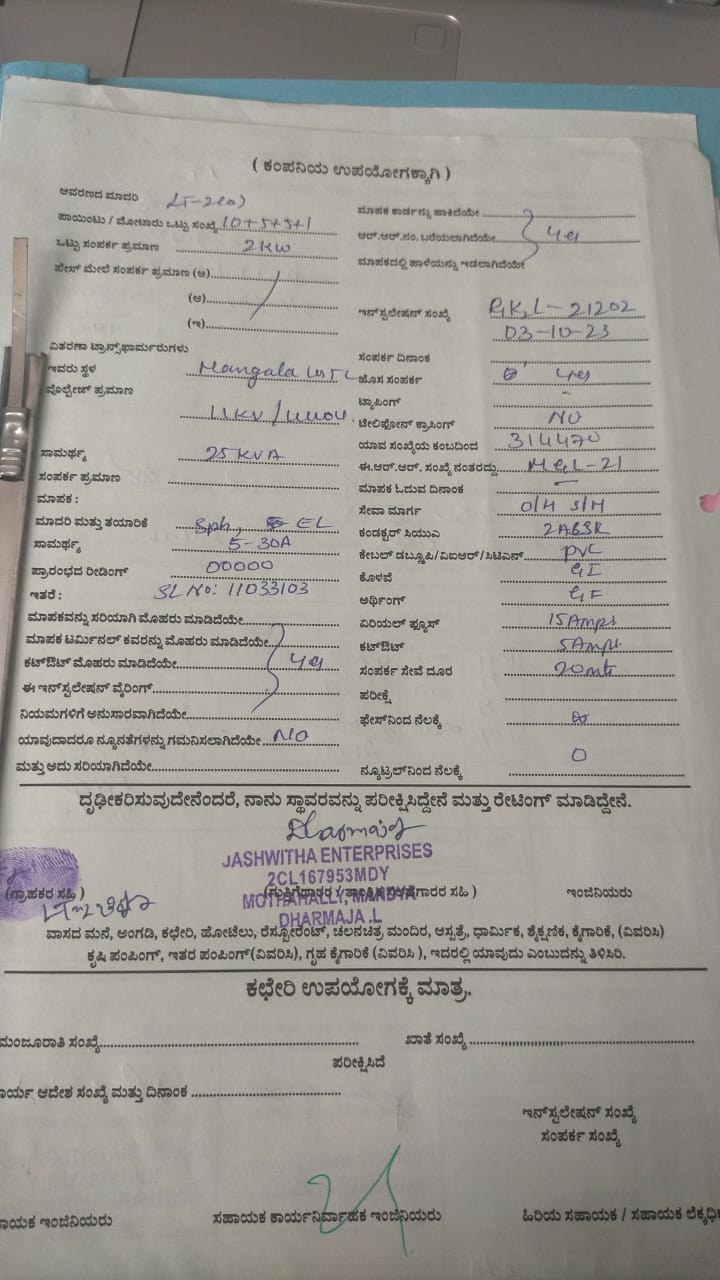 ( ಕಂಪನಿಯ ಉಪಯೋಗಕ್ಕಾಗಿ )
ಆವರಣದ ಮಾದರಿ LT-2(a)
ಪಾಯಿಂಟು / ಮೋಟಾರು ಒಟ್ಟು ಸಂಖ್ಯೆ 10+5+5+1
ಒಟ್ಟು ಸಂಪರ್ಕ ಪ್ರಮಾಣ 2KW
ಫೇಸ್ ಮೇಲೆ ಸಂಪರ್ಕ ಪ್ರಮಾಣ (ಅ)
(ಆ)
(ಇ)
ವಿತರಣಾ ಟ್ರಾನ್ಸ್‌ಫಾರ್ಮರುಗಳು
ಇವರು ಸ್ಥಳ Mangala
ವೋಲ್ಟೇಜ್ ಪ್ರಮಾಣ
11KV /
ಸಾಮರ್ಥ್ಯ 25KVA
ಸಂಪರ್ಕ ಪ್ರಮಾಣ
ಮಾಪಕ :
ಮಾದರಿ ಮತ್ತು ತಯಾರಿಕೆ EL
ಸಾಮರ್ಥ್ಯ 5-30A
ಪ್ರಾರಂಭದ ರೀಡಿಂಗ್ 00000
ಇತರೆ : SL No: 11033103
ಮಾಪಕವನ್ನು ಸರಿಯಾಗಿ ಮೊಹರು ಮಾಡಿದೆಯೇ
ಮಾಪಕ ಟರ್ಮಿನಲ್ ಕವರನ್ನು ಮೊಹರು ಮಾಡಿದೆಯೇ
ಕಟ್‌ಔಟ್ ಮೊಹರು ಮಾಡಿದೆಯೇ yes
ಈ ಇನ್‌ಸ್ಟಲೇಷನ್ ವೈರಿಂಗ್
ನಿಯಮಗಳಿಗೆ ಅನುಸಾರವಾಗಿದೆಯೇ
ಯಾವುದಾದರೂ ನ್ಯೂನತೆಗಳನ್ನು ಗಮನಿಸಲಾಗಿದೆಯೇ NO
ಮತ್ತು ಅದು ಸರಿಯಾಗಿದೆಯೇ
ಮಾಪಕ ಕಾರ್ಡನ್ನು ಹಾಕಿದೆಯೇ
ಆರ್.ಆರ್.ನಂ. ಬರೆಯಲಾಗಿದೆಯೇ yes
ಮಾಪಕದಲ್ಲಿ ಹಾಳೆಯನ್ನು ಇಡಲಾಗಿದೆಯೇ
ಇನ್‌ಸ್ಟಲೇಷನ್ ಸಂಖ್ಯೆ 21202
03-10-23
ಸಂಪರ್ಕ ದಿನಾಂಕ
ಹೊಸ ಸಂಪರ್ಕ yes
ಟ್ಯಾಪಿಂಗ್ -
ಟೆಲಿಫೋನ್ ಕ್ರಾಸಿಂಗ್ NO
ಯಾವ ಸಂಖ್ಯೆಯ ಕಂಬದಿಂದ 314470
ಈ.ಆರ್.ಆರ್. ಸಂಖ್ಯೆ ನಂತರದ್ದು MGL-21
ಮಾಪಕ ಓದುವ ದಿನಾಂಕ -
ಸೇವಾ ಮಾರ್ಗ O/H S/M
ಕಂಡಕ್ಟರ್ ಸಿಯುಎ
ಕೇಬಲ್ ಡಬ್ಲ್ಯೂಪಿ/ವಿಐಆರ್/ಸಿಟಿಎನ್ PVC
ಕೊಳವೆ GI
ಅರ್ಥಿಂಗ್
ಏರಿಯಲ್ ಫ್ಯೂಸ್ 15Amps
ಕಟ್‌ಔಟ್ 5Amps
ಸಂಪರ್ಕ ಸೇವೆ ದೂರ 20mts
ಪರೀಕ್ಷೆ
ಫೇಸ್‌ನಿಂದ ನೆಲಕ್ಕೆ
ನ್ಯೂಟ್ರಲ್‌ನಿಂದ ನೆಲಕ್ಕೆ 0
ದೃಢೀಕರಿಸುವುದೇನೆಂದರೆ, ನಾನು ಸ್ಥಾವರವನ್ನು ಪರೀಕ್ಷಿಸಿದ್ದೇನೆ ಮತ್ತು ರೇಟಿಂಗ್ ಮಾಡಿದ್ದೇನೆ.
JASHWITHA ENTERPRISES
2CL167953MDY
(ಗ್ರಾಹಕರ ಸಹಿ )
MOTHAHALLI, MANDYA
ಸಹಿ )
ಇಂಜಿನಿಯರು
DHARMAJA .L
ವಾಸದ ಮನೆ, ಅಂಗಡಿ, ಕಛೇರಿ, ಹೋಟೆಲು, ರೆಸ್ಟೋರೆಂಟ್, ಚಲನಚಿತ್ರ ಮಂದಿರ, ಆಸ್ಪತ್ರೆ, ಧಾರ್ಮಿಕ, ಶೈಕ್ಷಣಿಕ, ಕೈಗಾರಿಕೆ, (ವಿವರಿಸಿ)
ಕೃಷಿ ಪಂಪಿಂಗ್, ಇತರ ಪಂಪಿಂಗ್(ವಿವರಿಸಿ), ಗೃಹ ಕೈಗಾರಿಕೆ (ವಿವರಿಸಿ ), ಇದರಲ್ಲಿ ಯಾವುದು ಎಂಬುದನ್ನು ತಿಳಿಸಿರಿ.
ಕಛೇರಿ ಉಪಯೋಗಕ್ಕೆ ಮಾತ್ರ.
ಮಂಜೂರಾತಿ ಸಂಖ್ಯೆ
ಖಾತೆ ಸಂಖ್ಯೆ
ಪರೀಕ್ಷಿಸಿದೆ
ಾರ್ಯ ಆದೇಶ ಸಂಖ್ಯೆ ಮತ್ತು ದಿನಾಂಕ
ಇನ್‌ಸ್ಟಲೇಷನ್ ಸಂಖ್ಯೆ
ಸಂಪರ್ಕ ಸಂಖ್ಯೆ
ಾಯಕ ಇಂಜಿನಿಯರು
ಸಹಾಯಕ ಕಾರ್ಯನಿರ್ವಾಹಕ ಇಂಜಿನಿಯರು
ಹಿರಿಯ ಸಹಾಯಕ / ಸಹಾಯಕ ಲೆಕ್ಕಧಿ